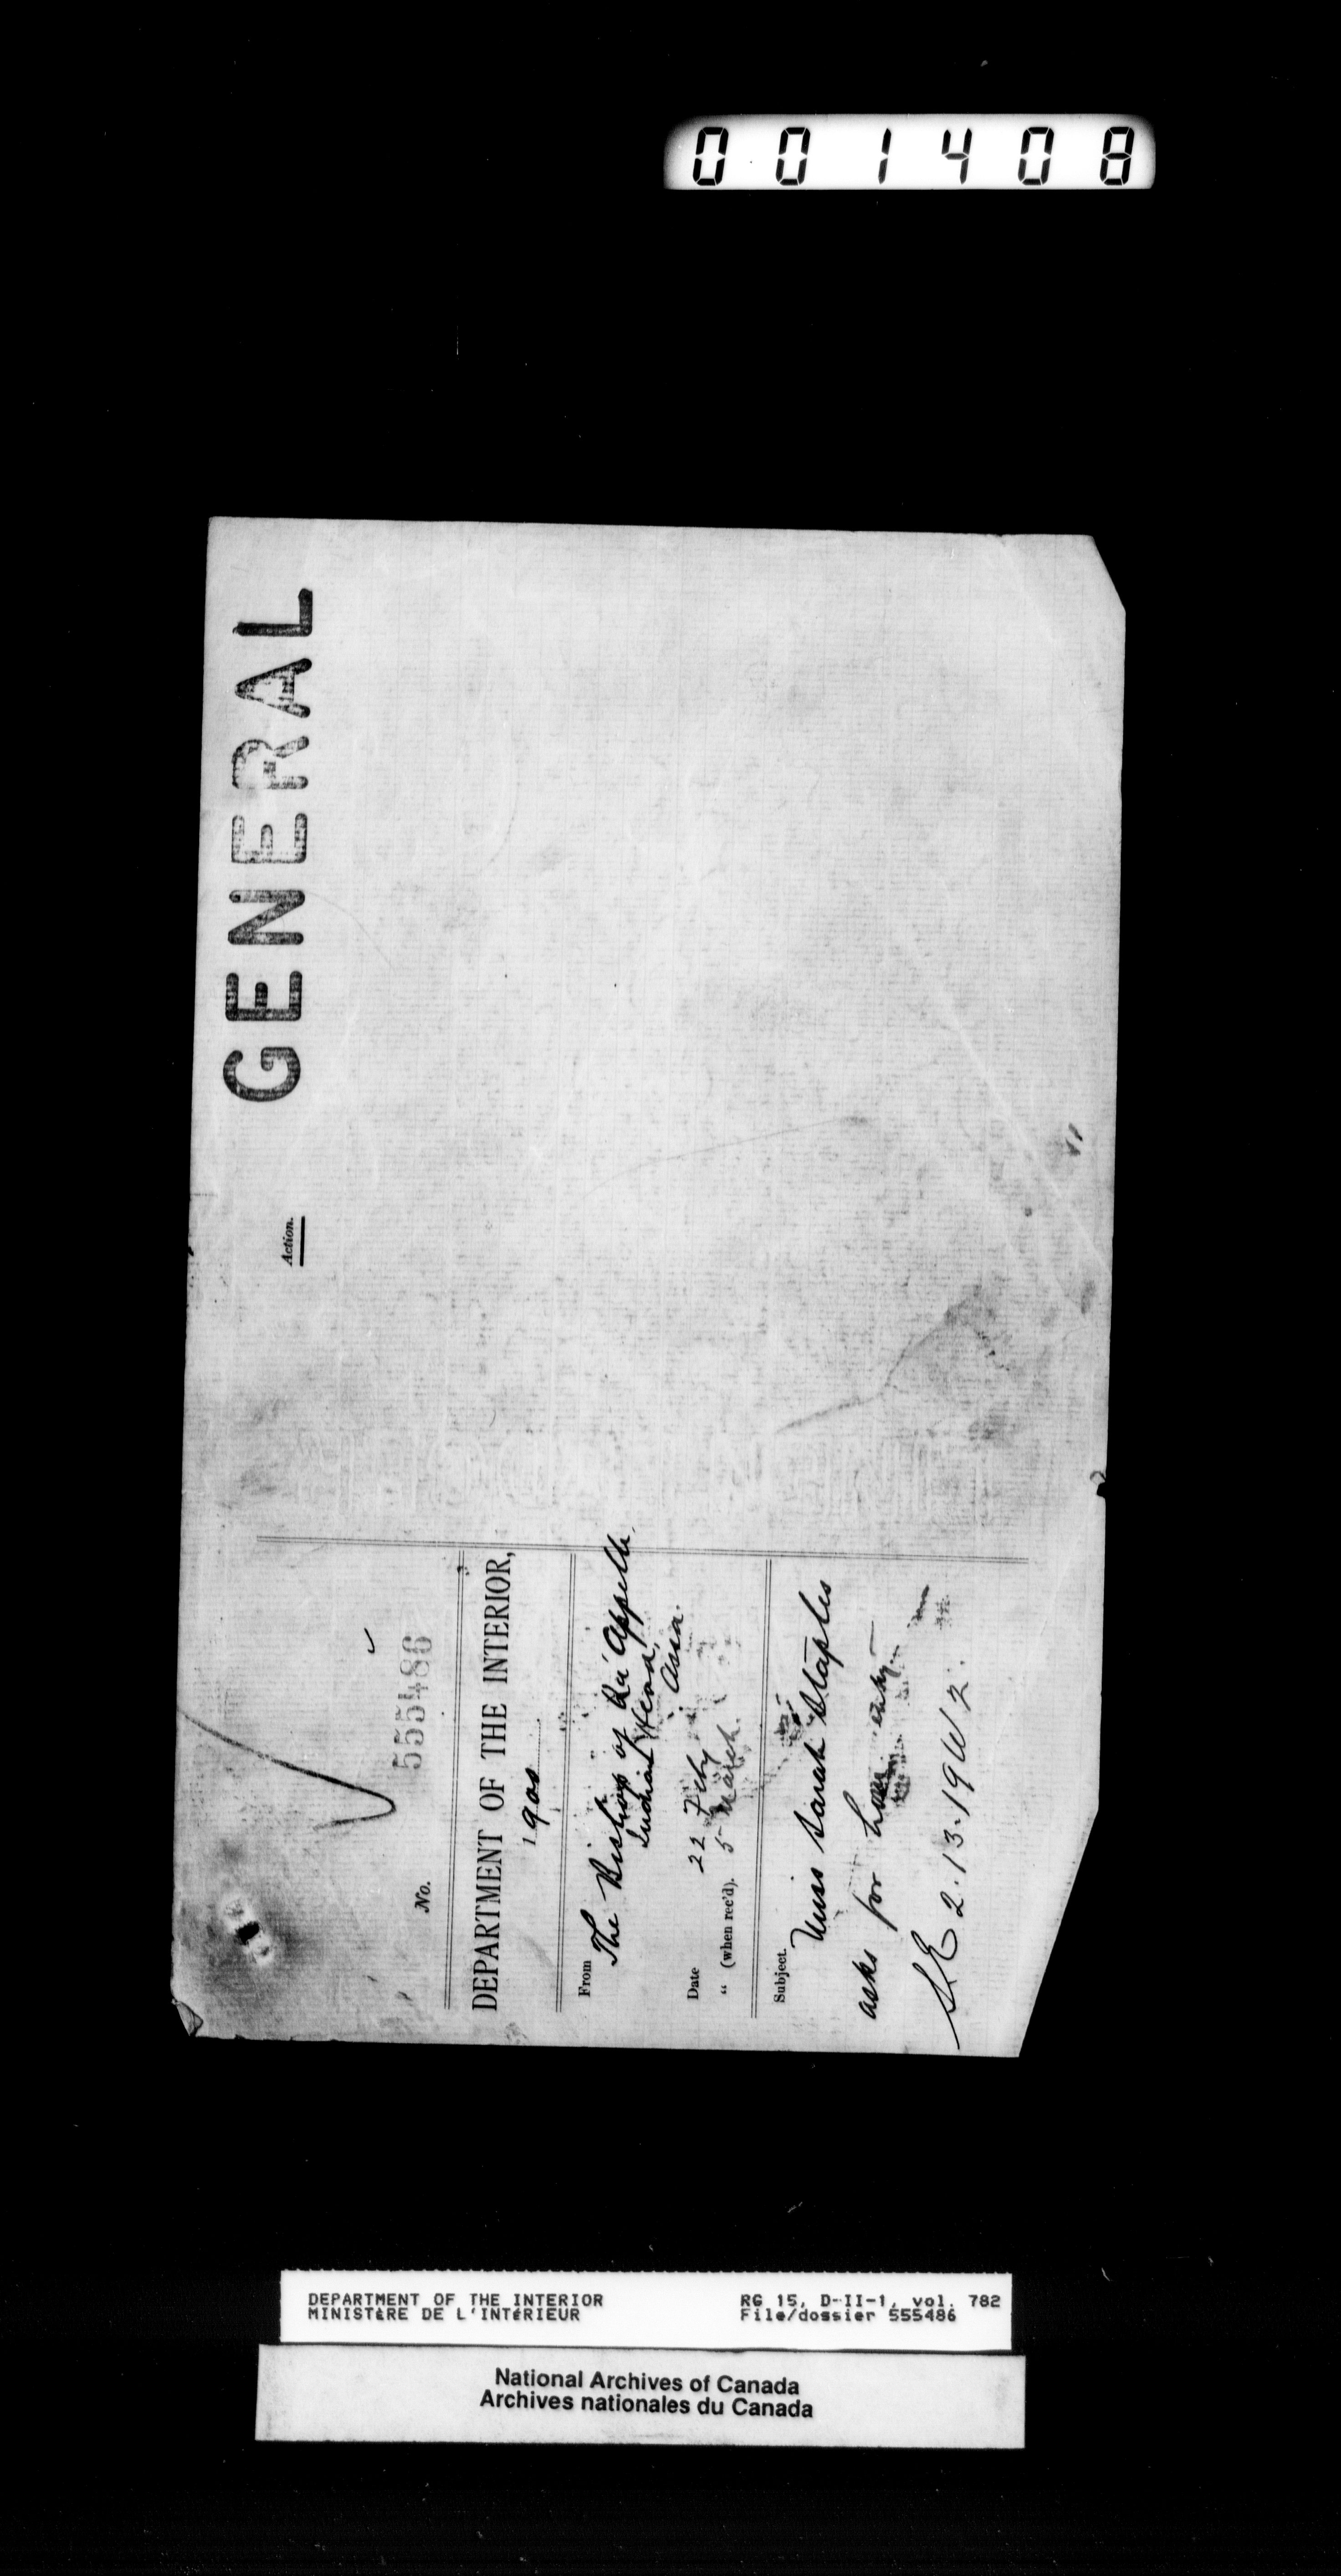 001408
GENERAL
Action.
No. 555486
DEPARTMENT OF THE INTERIOR,
1900
From The Bishop of Qu'Appelle,
Indian Head,
Assa.
Date 22 Feby
" (when rec'd). 5 March.
Subject. Miss Sarah Staples
asks for entry
SE 2.13.19 W 2.
DEPARTMENT OF THE INTERIOR
MINISTÈRE DE L'INTÉRIEUR
RG 15, D-II-1, vol. 782
File/dossier 555486
National Archives of Canada
Archives nationales du Canada